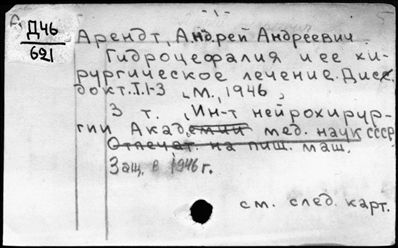 Д46
621
Арендт, Андрей Андреевич
Гидроцефалия и ее хи-
рургическое лечение. Дисс.
докт. Т.1-3 М., 1946
3 т. Ин-т нейрохирур-
гии Академии мед. наук СССР
Отпечат. на пиш. маш.
Защ. в 1946 г.
см. след. карт.